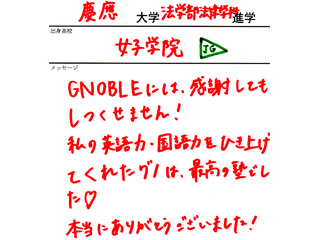 慶應大学法学部法律学科進学
出身高校
女子学院 JG
メッセージ
GNOBLEには、感謝しても
しつくせません!
私の英語力・国語力をひき上げ
てくれたグノは、最高の塾でし
た♡
本当にありがとうございました!